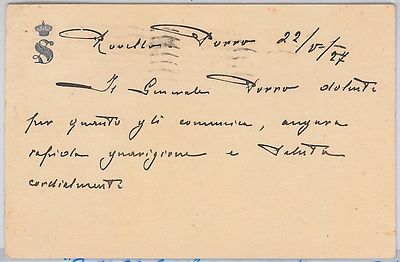 S
Rovello Porro 22/V/27
Il Generale Porro dolente
per quanto gli comunica, augura
rapida guarigione e saluta
cordialmente